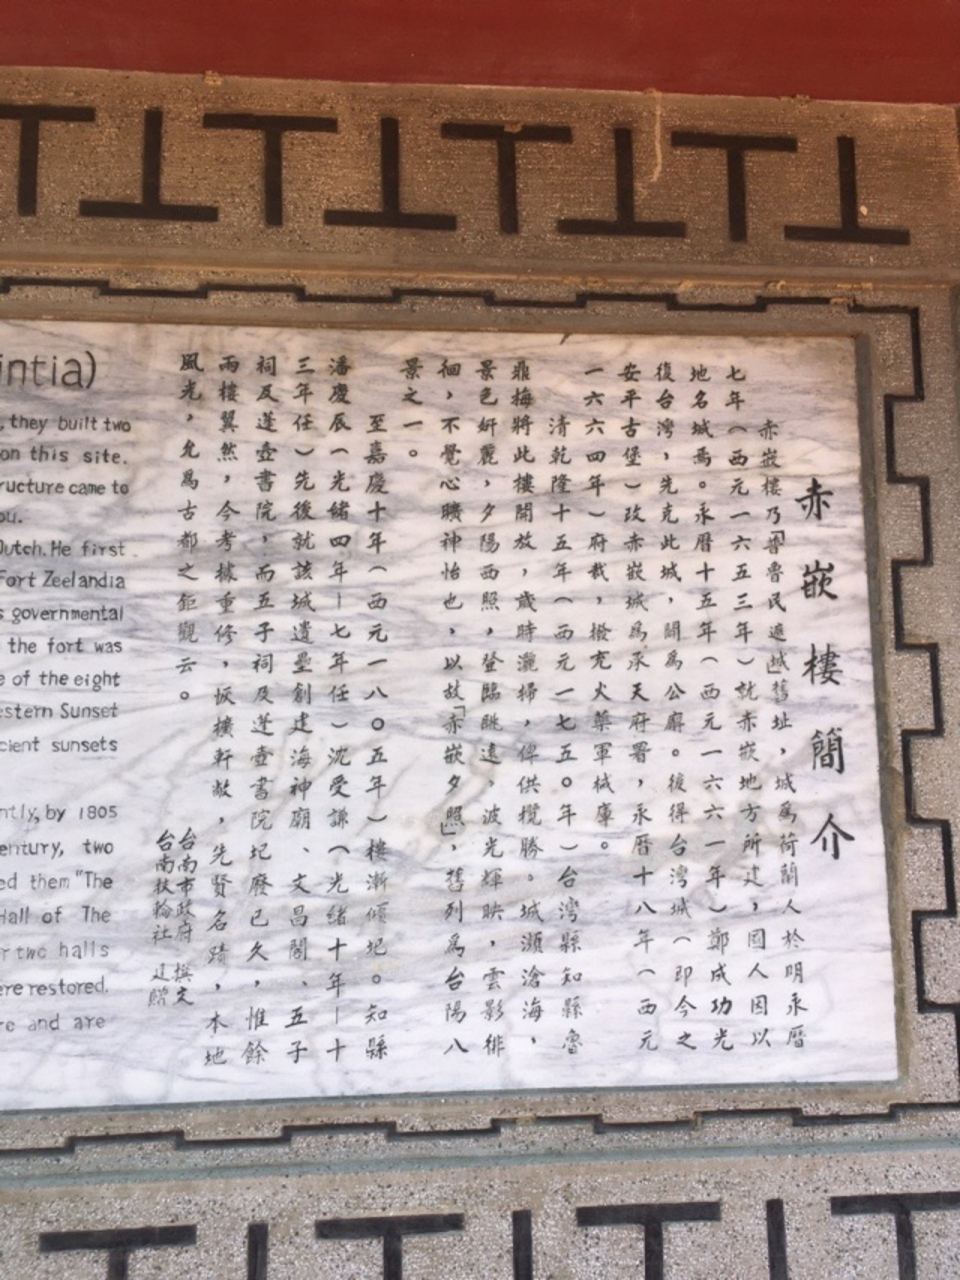 赤嵌樓簡介
赤嵌樓乃「普魯民遮城」舊址，城為荷蘭人於明永曆
七年（西元一六五三年）就赤嵌地方所建，國人因以
地名城焉。永曆十五年（西元一六六一年）鄭成功光
復台灣，先克此城，闢為公廨。後得台灣城（即今之
安平古堡）改赤嵌城為承天府署，永曆十八年（西元
一六六四年）府裁，撥充火藥軍械庫。
清乾隆十五年（西元一七五〇年）台灣縣知縣魯
鼎梅將此樓開放，歲時灑掃，俾供攬勝。城瀕滄海，
景色妍麗，夕陽西照，登臨眺遠，波光輝映，雲影徘
徊，不覺心曠神怡也，以故「赤嵌夕照」，舊列為台陽八
景之一。
至嘉慶十年（西元一八〇五年）樓漸傾圮。知縣
潘慶辰（光緒四年－七年任）沈受謙（光緒十年－十
三年任）先後就該城遺壘創建海神廟、文昌閣、五子
祠及蓬壺書院，而五子祠及蓬壺書院圮廢已久，惟餘
兩樓翼然，今考據重修，恢擴軒敞，先賢名蹟，本地
風光，允為古都之鉅觀云。
台南市政府 撰文
台南扶輪社 建贈
intia)
, they built two
on this site.
ructure came to
ou.
Dutch. He first
Fort Zeelandia
s governmental
the fort was
e of the eight
estern Sunset
cient sunsets
ntly, by 1805
entury, two
ed them "The
Hall of The
r two halls
ere restored.
re and are